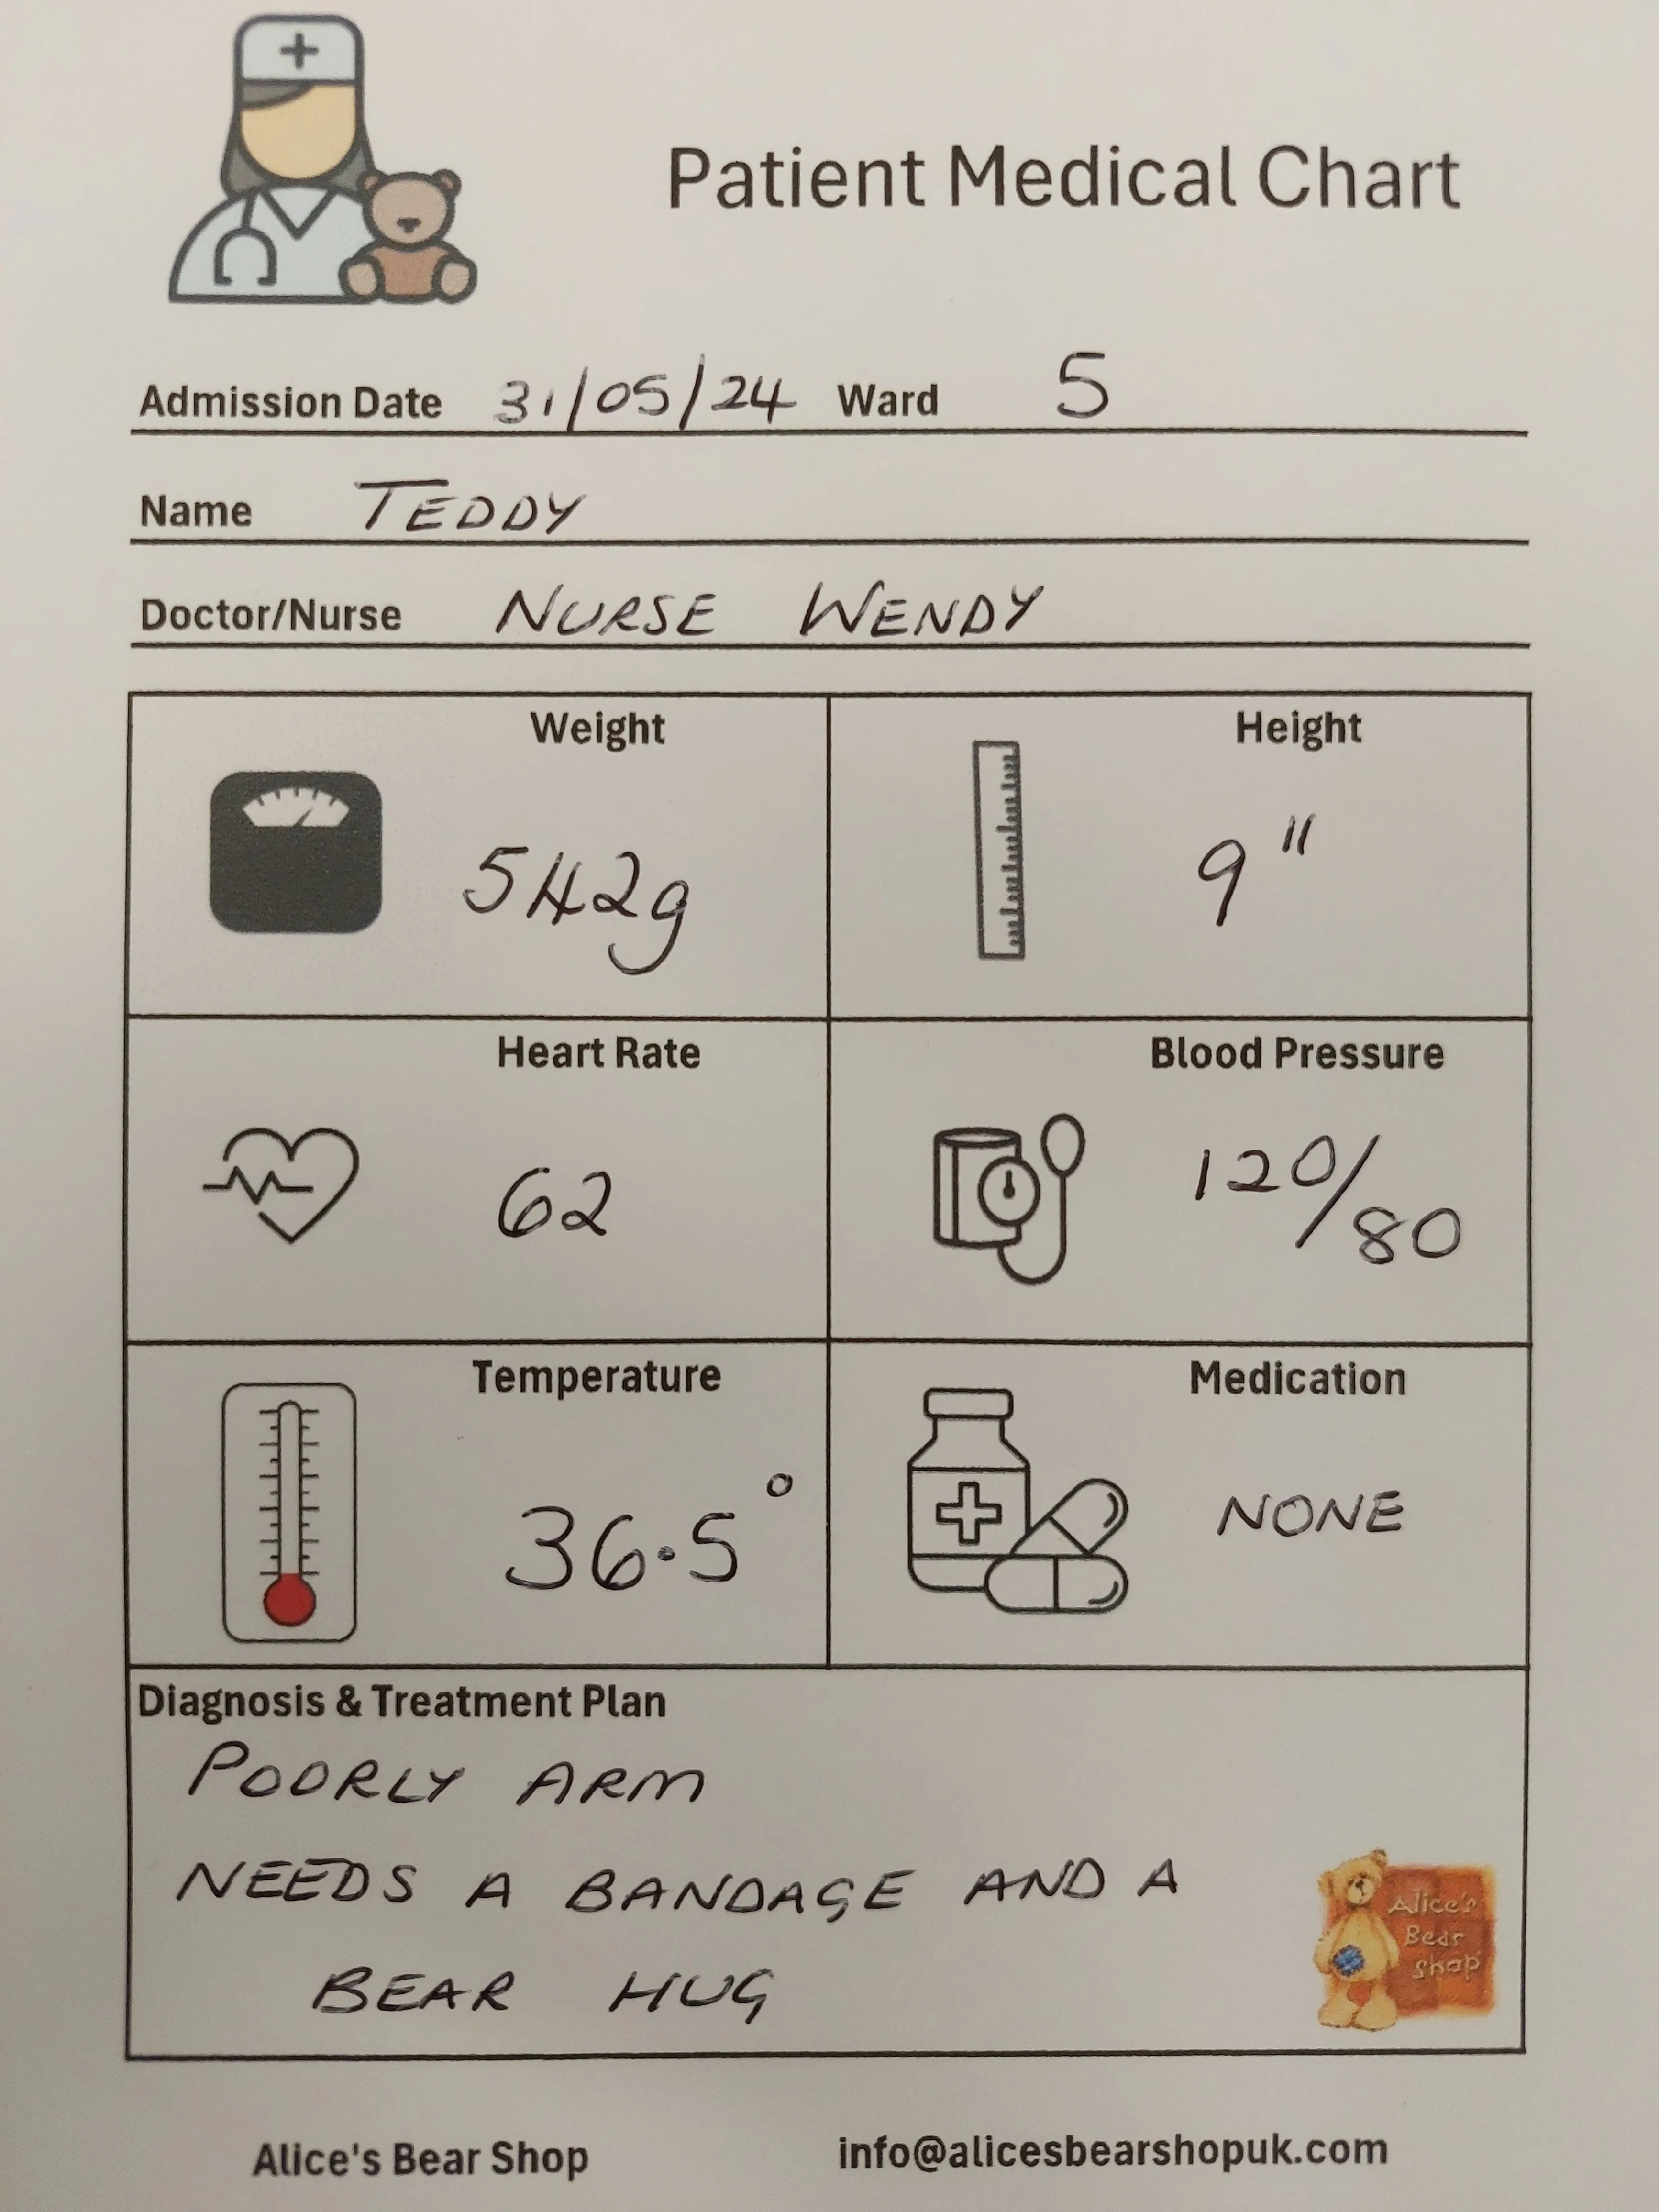 Patient Medical Chart
Admission Date 31/05/24 Ward 5
Name TEDDY
Doctor/Nurse NURSE WENDY
Weight
542g
Height
9"
Heart Rate
62
Blood Pressure
120/80
Temperature
36.5°
Medication
NONE
Diagnosis & Treatment Plan
POORLY ARM
NEEDS A BANDAGE AND A
BEAR HUG
Alice's
Bear
Shop
Alice's Bear Shop info@alicesbearshopuk.com